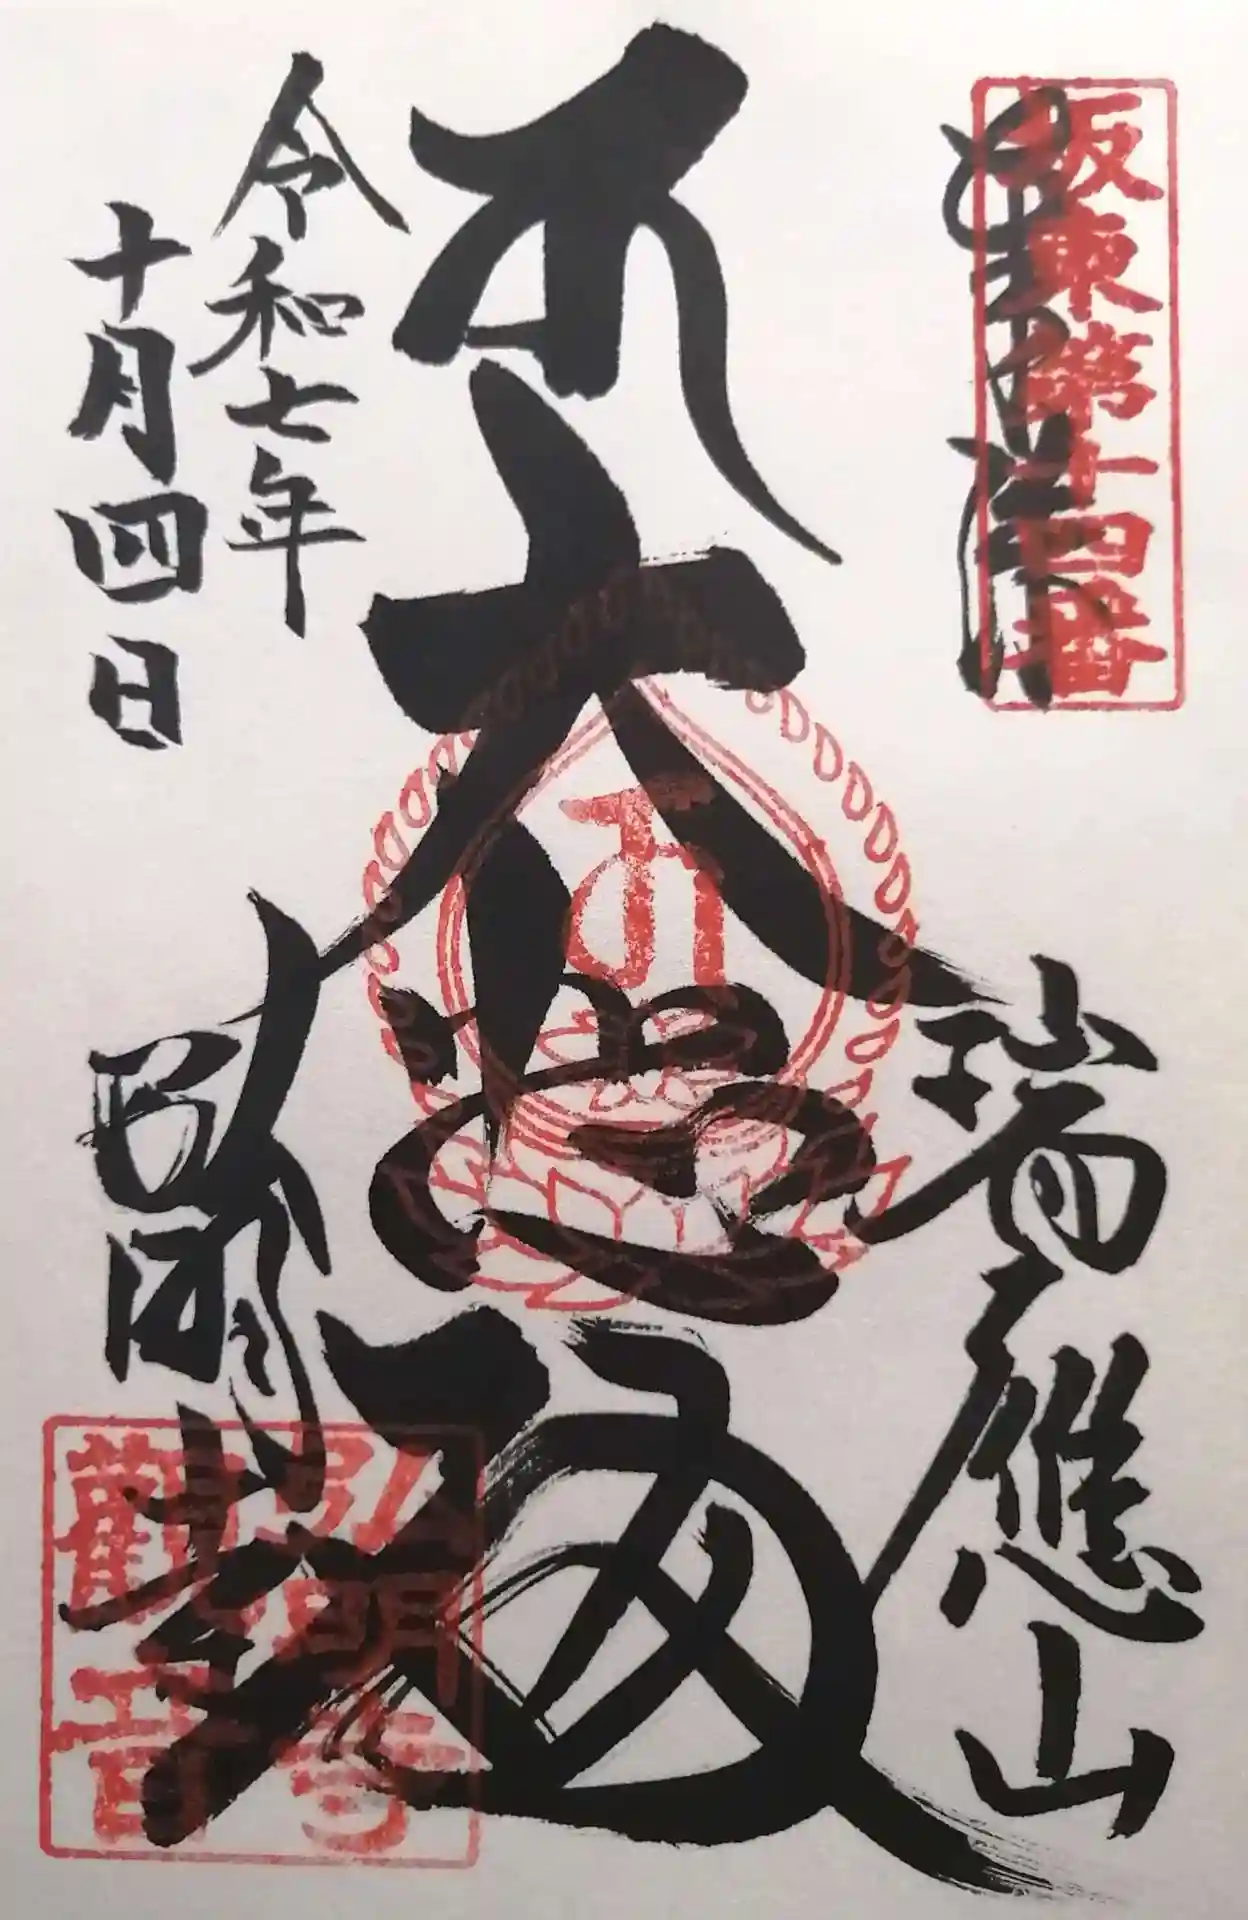 坂東第十四番
奉拝
瑞應山
大悲殿
令和七年
十月四日
弘明寺
弘明寺
觀音